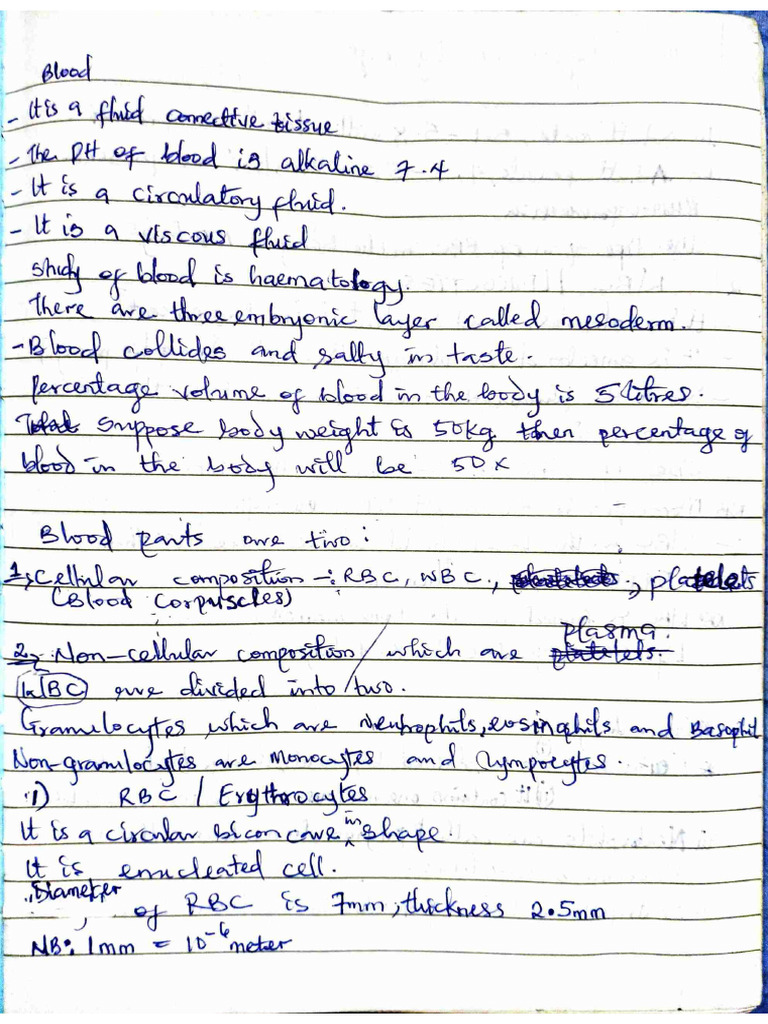 Blood
- It is a fluid connective tissue
- The PH of blood is alkaline 7.4
- It is a circulatory fluid.
- It is a viscous fluid
study of blood is haematology.
There are three embryonic layer called mesoderm.
- Blood collides and salty in taste.
percentage volume of blood in the body is 5 litres.
Suppose body weight is 50kg then percentage of
blood in the body will be 50 x
Blood parts are two:
1, Cellular composition -: RBC, WBC, platelets, platelets
(Blood Corpuscles)
plasma.
2, Non-cellular composition / which are platelets.
WBC are divided into two.
Granulocytes which are Neutrophils, eosinophils and Basophil
Non-granulocytes are Monocytes and Lympocytes.
1) RBC / Erythrocytes
It is a circular biconcave in shape.
It is enucleated cell.
Diameter
of RBC is 7mm, thickness 2.5mm
NB: 1mm = 10-6 meter